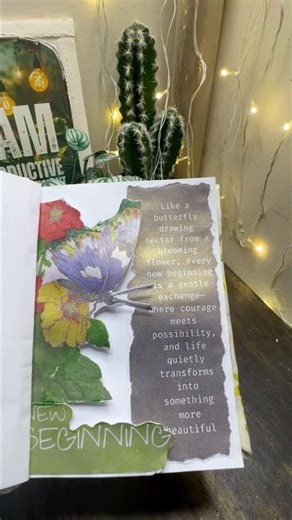 AM
Like a
butterfly
drawing
nectar from a
blooming
flower, every
new beginning
is a gentle
exchange—
where courage
meets
possibility,
and life
quietly
transforms
into
something
more
beautiful
NEW
BEGINNING